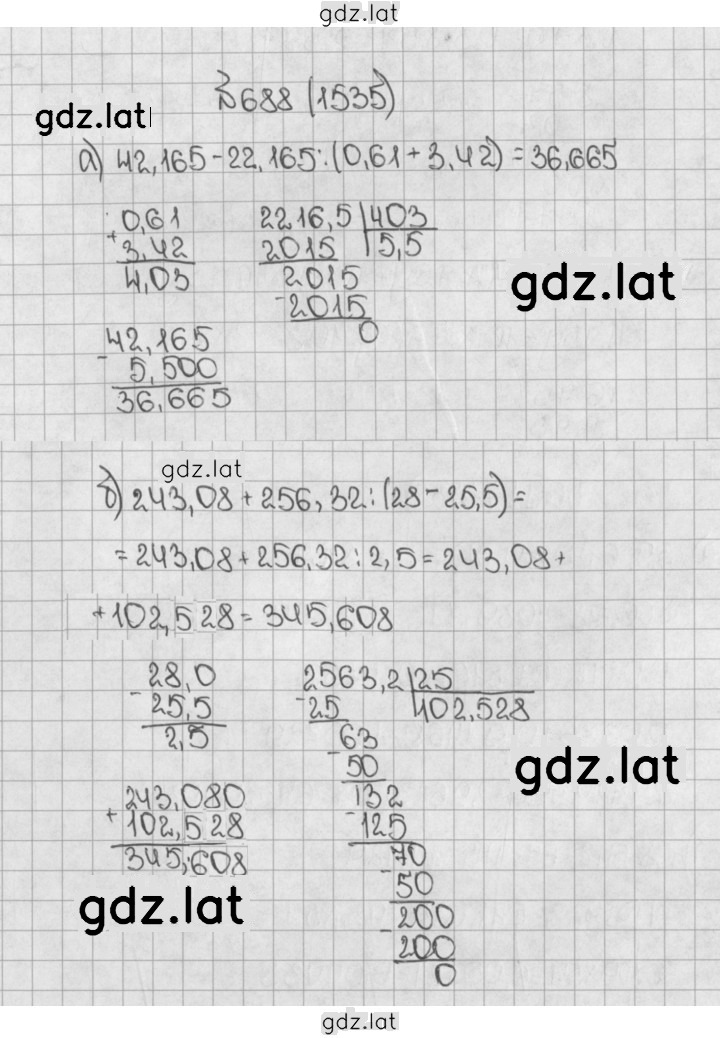 gdz.lat
№688 (1535)
gdz.lat
а) 42,165-22,165:(0,61+3,42)=36,665
0,61
+
3,42
4,03
2216,5 403
2015 5,5
2015
-2015
0
gdz.lat
42,165
-
5,500
36,665
gdz.lat
б) 243,08+256,32:(28-25,5)=
=243,08+256,32:2,5=243,08+
+102,528=345,608
28,0
-
25,5
2,5
2563,2 25
-25 102,528
63
-
50
132
-125
70
-50
200
-200
0
gdz.lat
243,080
+
102,528
345,608
gdz.lat
gdz.lat